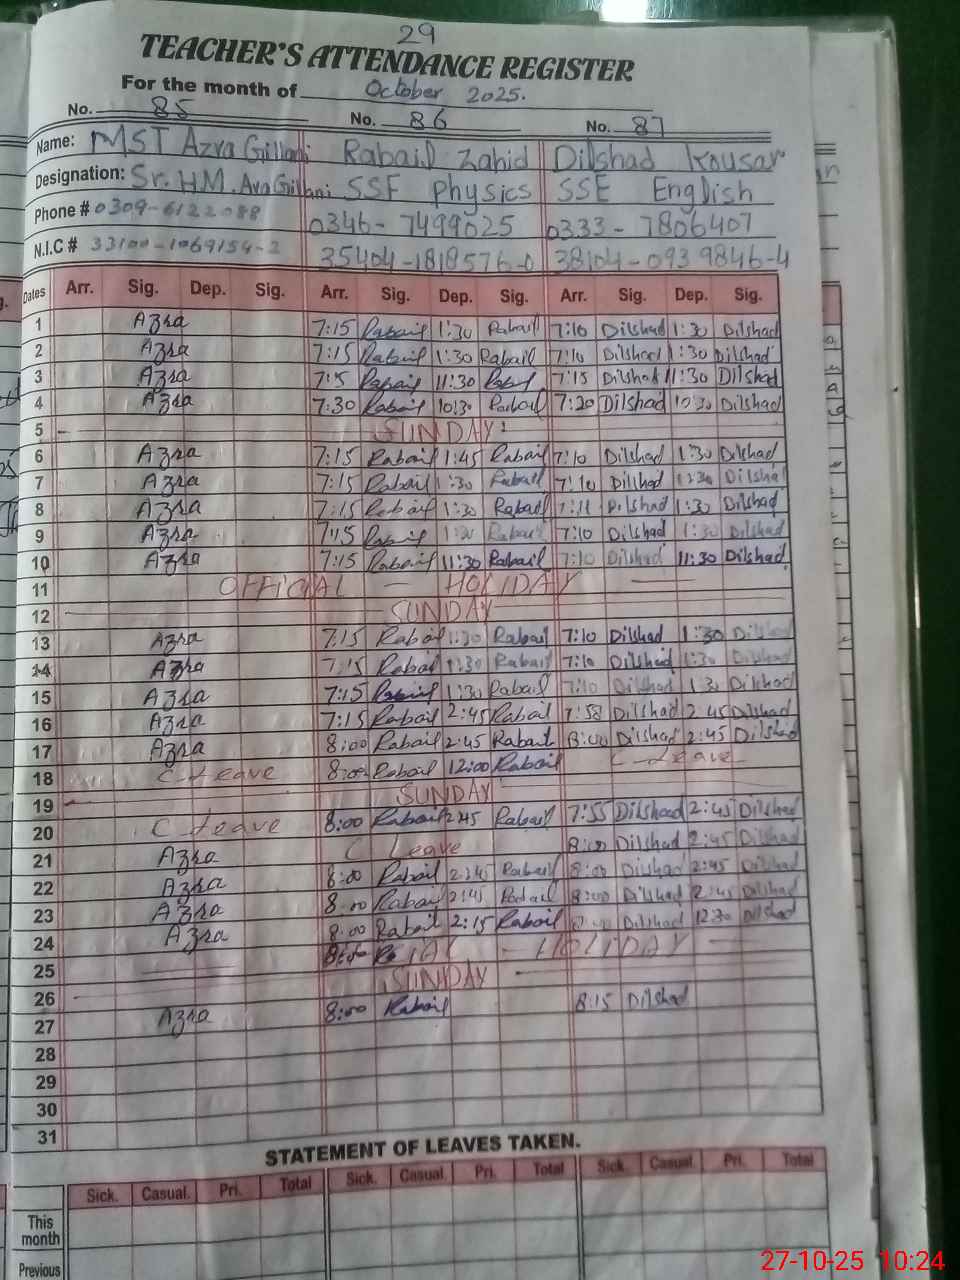 29
TEACHER'S ATTENDANCE REGISTER
For the month of October 2025.
No. 85 No. 86 No. 87
Name: MST Azra Gillani Rabail Zahid Dilshad Kousar
Designation: Sr. H.M. Ava Gillani SSE Physics SSE English
Phone # 0309-6122088 0346-7499025 0333-7806407
N.I.C # 33100-1069154-2 35404-1818576-0 38104-0939846-4
Dates Arr. Sig. Dep. Sig. Arr. Sig. Dep. Sig. Arr. Sig. Dep. Sig.
1 Azra 7:15 Rabail 1:30 Rabail 7:10 Dilshad 1:30 Dilshad
2 Azra 7:15 Rabail 1:30 Rabail 7:10 Dilshad 1:30 Dilshad
3 Azra 7:15 Rabail 11:30 Rabail 7:15 Dilshad 11:30 Dilshad
4 Azra 7:30 Rabail 10:30 Rabail 7:20 Dilshad 10:30 Dilshad
5 SUNDAY
6 Azra 7:15 Rabail 1:45 Rabail 7:10 Dilshad 1:30 Dilshad
7 Azra 7:15 Rabail 1:30 Rabail 7:10 Dilshad 1:30 Dilshad
8 Azra 7:15 Rabail 1:30 Rabail 7:11 Dilshad 1:30 Dilshad
9 Azra 7:15 Rabail Rabail 7:10 Dilshad 1:30 Dilshad
10 Azra 7:15 Rabail 11:30 Rabail 7:10 Dilshad 11:30 Dilshad
11 OFFICIAL HOLIDAY
12 SUNDAY
13 Azra 7:15 Rabail 1:30 Rabail 7:10 Dilshad 1:30 Dilshad
14 Azra 7:15 Rabail 1:30 Rabail 7:10 Dilshad 1:30 Dilshad
15 Azra 7:15 Rabail 1:30 Rabail 7:10 Dilshad 1:30 Dilshad
16 Azra 7:15 Rabail 2:45 Rabail 7:58 Dilshad 2:45 Dilshad
17 Azra 8:00 Rabail 2:45 Rabail 8:00 Dilshad 2:45 Dilshad
18 C-Leave 8:00 Rabail 12:00 Rabail C-Leave
19 SUNDAY
20 C-Leave 8:00 Rabail 2:45 Rabail 7:55 Dilshad 2:45 Dilshad
21 Azra C Leave 8:00 Dilshad 2:45 Dilshad
22 Azra 8:00 Rabail 2:45 Rabail 8:00 Dilshad 2:45 Dilshad
23 Azra 8:00 Rabail 2:45 Rabail 8:00 Dilshad 2:45 Dilshad
24 Azra 8:00 Rabail 2:15 Rabail Dilshad 12:30 Dilshad
25 HOLIDAY
26 SUNDAY
27 Azra 8:00 Rabail 8:15 Dilshad
28
29
30
31
STATEMENT OF LEAVES TAKEN.
Sick. Casual. Pri. Total Sick. Casual. Pri. Total Sick. Casual. Pri. Total
This month
Previous
27-10-25 10:24